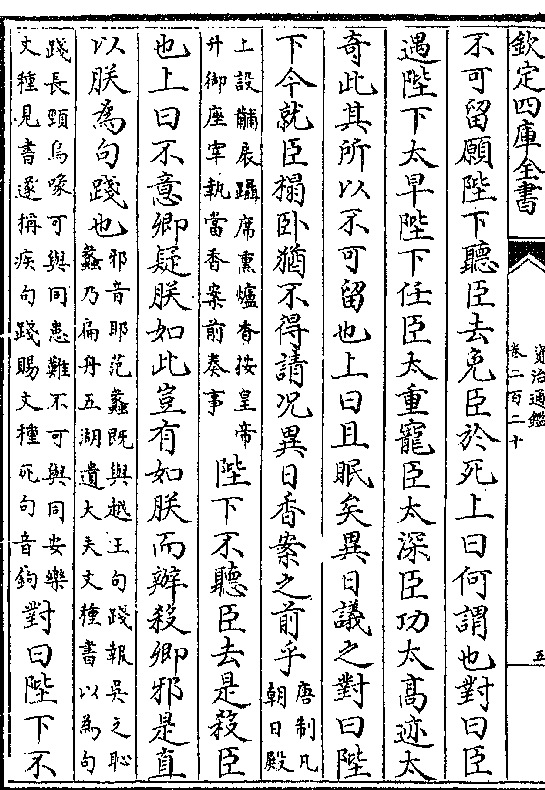 欽定四庫全書
資治通鑑
卷二百二十
五
不可留願陛下聽臣去免臣於死上曰何謂也對曰臣
遇陛下太早陛下任臣太重寵臣太深臣功太高迹太
奇此其所以不可留也上曰且眠矣異日議之對曰陛
下今就臣榻卧猶不得請况異日香案之前乎
唐制凡
朝日殿
上設黼扆躡席熏爐香按皇帝
升御座宰執當香案前奏事
陛下不聽臣去是殺臣
也上曰不意卿疑朕如此豈有如朕而辦殺卿邪是直
以朕為句踐也
邪音耶范蠡既與越王句踐報吳之恥
蠡乃扁舟五湖遺大夫文種書以為句
踐長頸烏喙可與同患難不可與同安樂
文種見書遂稱疾句踐賜文種死句音鉤
對曰陛下不